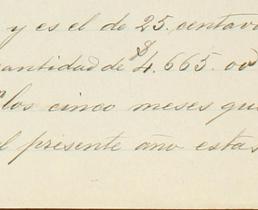 y es el de 25. centavo
cantidad de $4.665.00
los cinco meses que
el presente año estas